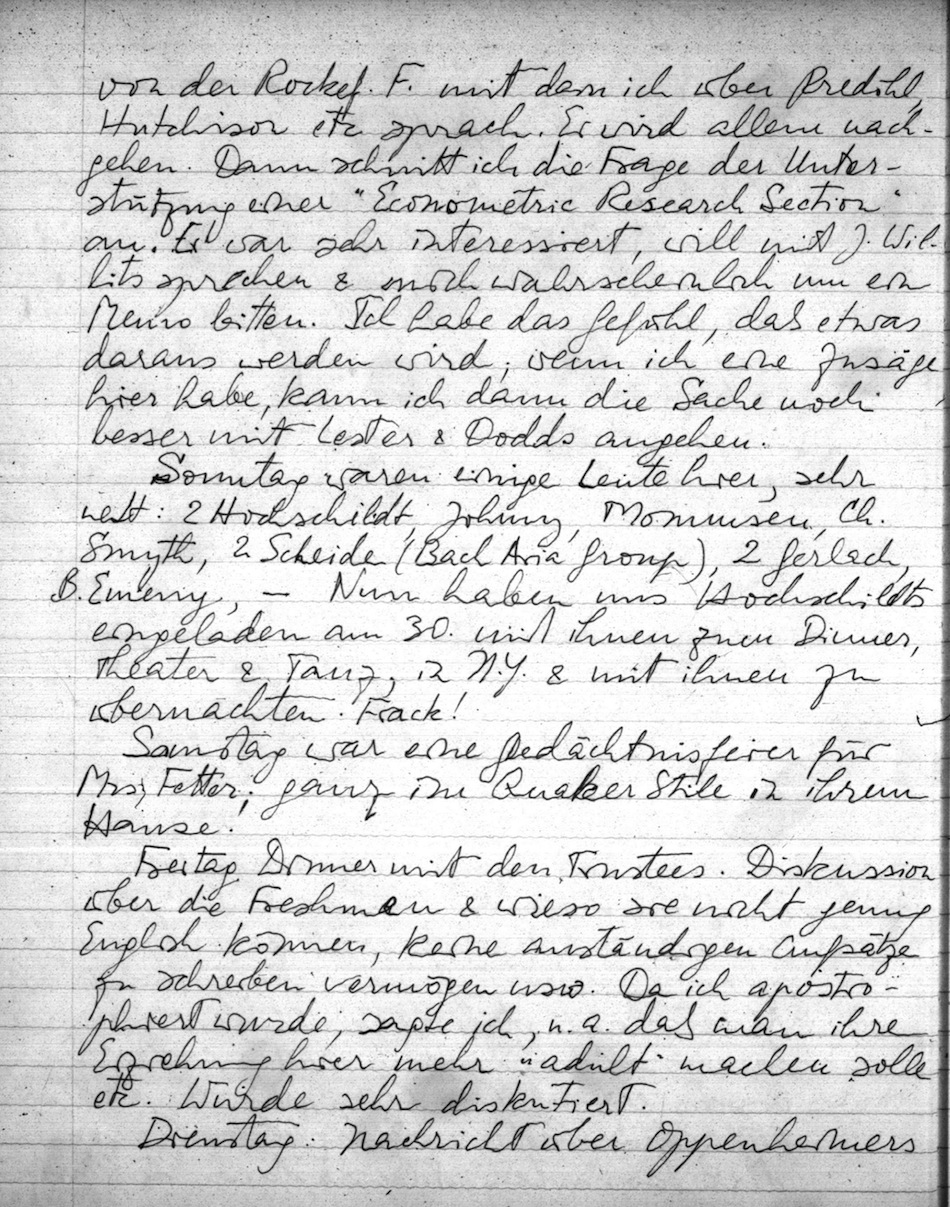 von der Rockef. F. mit dem ich über Predöhl,
Hutchison etc sprach. Er wird allem nach-
gehen. Dann schnitt ich die Frage der Unter-
stützung einer "Econometric Research Section"
an. Er war sehr interessiert, will mit J. Wil-
lits sprechen & mich wahrscheinlich um ein
Memo bitten. Ich habe das Gefühl, das etwas
daraus werden wird; wenn ich eine Zusage
hier habe, kann ich dann die Sache noch
besser mit Lester & Dodds angehen.
Sonntag waren einige Leute hier, sehr
nett: 2 Hochschildt, Johnny, Mommsen, Ch.
Smyth, 2 Scheide (Bach Aria Group), 2 Gerlach,
B. Emeny, – Nun haben uns Hochschildts
eingeladen am 30. mit ihnen zum Dinner,
Theater & Tanz, in N.Y. & mit ihnen zu
übernachten. Frack!
Samstag war eine Gedächtnisfeier für
Mrs. Fetter; ganz im Quaker Stile in ihrem
Hause.
Freitag Dinner mit den Trustees. Diskussion
über die Freshmen & wieso sie nicht genug
English können, keine anständigen Aufsätze
zu schreiben vermögen usw. Da ich apostro-
phiert wurde, sagte ich, u.a. das man ihre
Erziehung hier mehr "adult" machen solle
etc. Wurde sehr diskutiert.
Dienstag. Nachricht über Oppenheimers